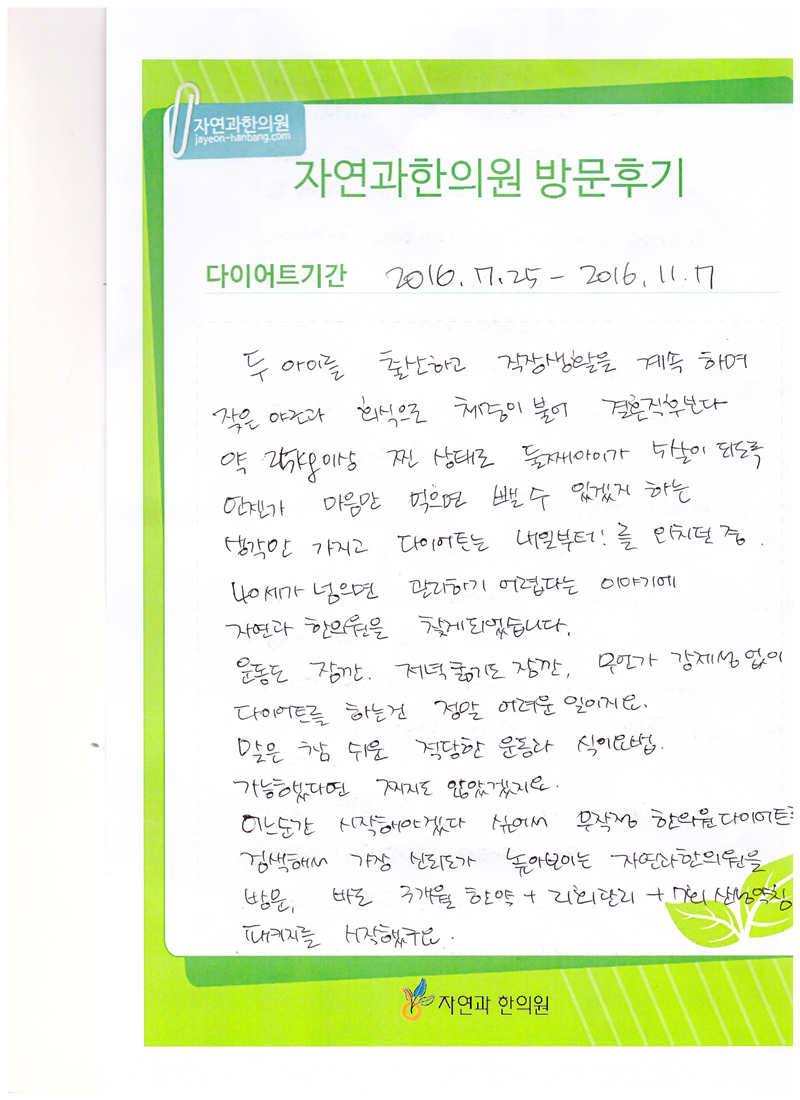 자연과한의원
jayeon-hanbang.com
자연과한의원 방문후기
다이어트기간 2016.7.25 - 2016.11.7
두 아이를 출산하고 직장생활을 계속 하며
잦은 야근과 회식으로 체중이 불어 결혼직후보다
약 이상 찐 상태로 둘째아이가 5살이 되도록
언젠가 마음만 먹으면 뺄 수 있겠지 하는
생각만 가지고 다이어트는 내일부터! 를 외치던 중.
40세가 넘으면 관리하기 어렵다는 이야기에
자연과 한의원을 찾게되었습니다.
운동도 잠깐. 저녁굶기도 잠깐, 무언가 강제성 없이
다이어트를 하는건 정말 어려운 일이지요.
말은 참 쉬운 적당한 운동과 식이요법.
가능했다면 찌지도 않았겠지요.
어느순간 시작해야겠다 싶어서 무작정 한의원다이어트를
검색해서 가장 신뢰도가 높아보이는 자연과한의원을
방문, 바로 3개월 한약 + 리희단리 + 7회
패키지를 시작했구요.
자연과 한의원